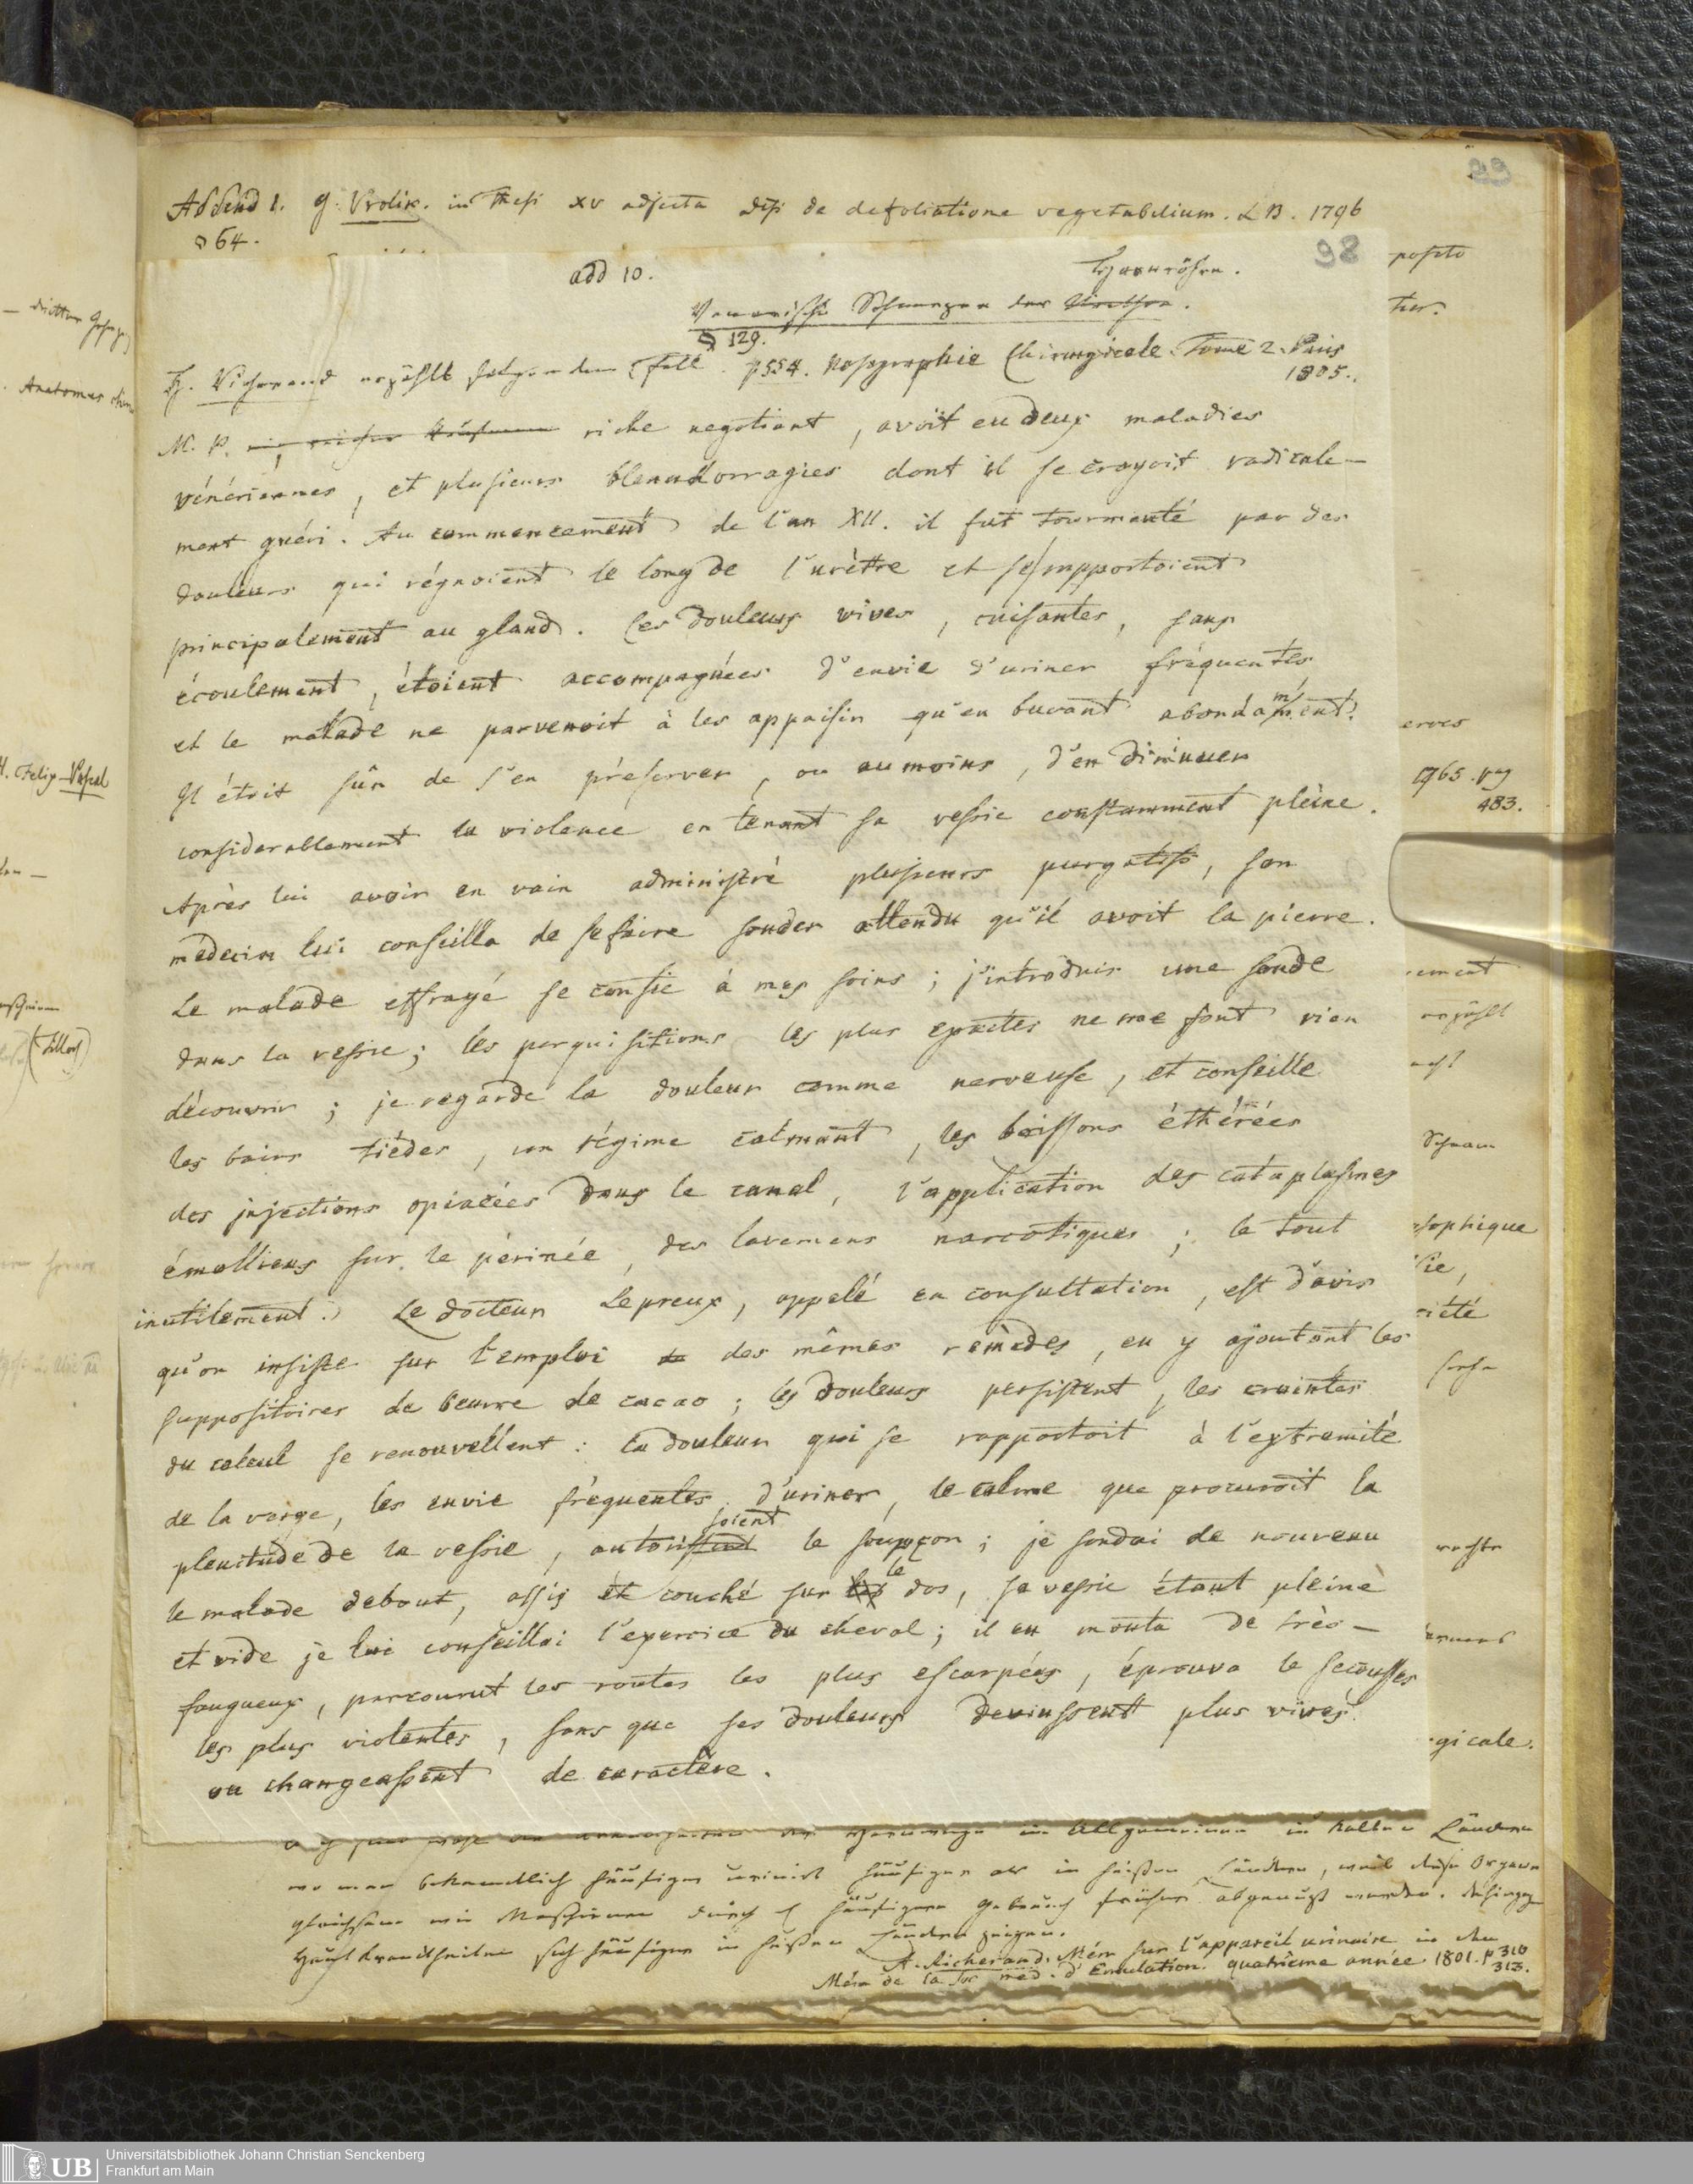 99
Addend 1. G. Vrolik. in Thesi XV adjecta disp de defoliatione vegetabilium. LB. 1796
§ 64.
98
add 10.
Harnröhre.
Venerische Schmerzen der Urethra.
§ 129.
H. Richerand erzählt folgenden Fall. p 554. Nosographie Chirurgicale. Tome 2. Paris
1805.
M. P. ein reicher Kaufmann riche negotiant, avoit eu deux maladies
vénériennes, et plusieurs blennhorragies dont il se croyoit radicale-
ment guéri. Au commencement de l'an XII. il fut tourmenté par des
douleurs qui régnoient le long de l'urètre et se rapportoient
principalement au gland. Ces douleurs vives, cuisantes, sans
écoulement, étoient accompagnées d'envie d'uriner fréquentes
et le malade ne parvenoit à les appaisir qu'en buvant abondamment.
Il étoit sûr de s'en préserver, ou au moins, d'en diminuer
considerablement la violence en tenant sa vessie constamment pleine.
Après lui avoir en vain administré plusieurs purgatifs, son
médecin lui conseilla de se faire sonder attendu qu'il avoit la pierre.
Le malade effrayé se confie à mes soins; j'introduis une sonde
dans la vessie; les perquisitions les plus exactes ne me font rien
découvrir; je regarde la douleur comme nerveuse, et conseille
les bains tiédes, un régime calmant, les boissons éthérées
des injections opiacées dans le canal, l'application des cataplasmes
émolliens sur le périnée, des lavemens narcotiques; le tout
inutilement. Le docteur Lepreux, appelé en consultation, est d'avis
qu'on insiste sur l'emploi de des mêmes remèdes, en y ajoutant les
suppositoires de beurre de cacao; les douleurs persistent, les craintes
du calcul se renouvellent: la douleur qui se rapportoit à l'extremité
de la verge, les envie fréquentes d'uriner, le calme que procuroit la
soient
plenitude de la vessie, autorisent le soupçon; je sondai de nouveau
le malade debout, assis et couché sur le dos, sa vessie étant pleine
et vide je lui conseillai l'exercice du cheval; il en monta de très-
fougueux, parcourut les routes les plus escarpées, éprouva le secousses
les plus violentes, sans que ses douleurs devinssent plus vives
ou changeassent de caractère.
im Allgemeinen in kalten Ländern
wo man bekanntlich häufiger urinirt häufiger als in heißen Ländern, weil diese Organe
gleichsam wie Maschinen durch häufigern Gebrauch früher abgenutzt werden. dahingegen
Hautkrankheiten sich häufiger in heißen Ländern zeigen.
A. Richerand. Mém sur l'appareil urinaire in den
Mém de la soc med. d'Emulation. quatrième année 1801. p 310
313.
posito
1765. pag
483.
erzählt
gicale.
H. Felix Pascal
Universitätsbibliothek Johann Christian Senckenberg
Frankfurt am Main
UB